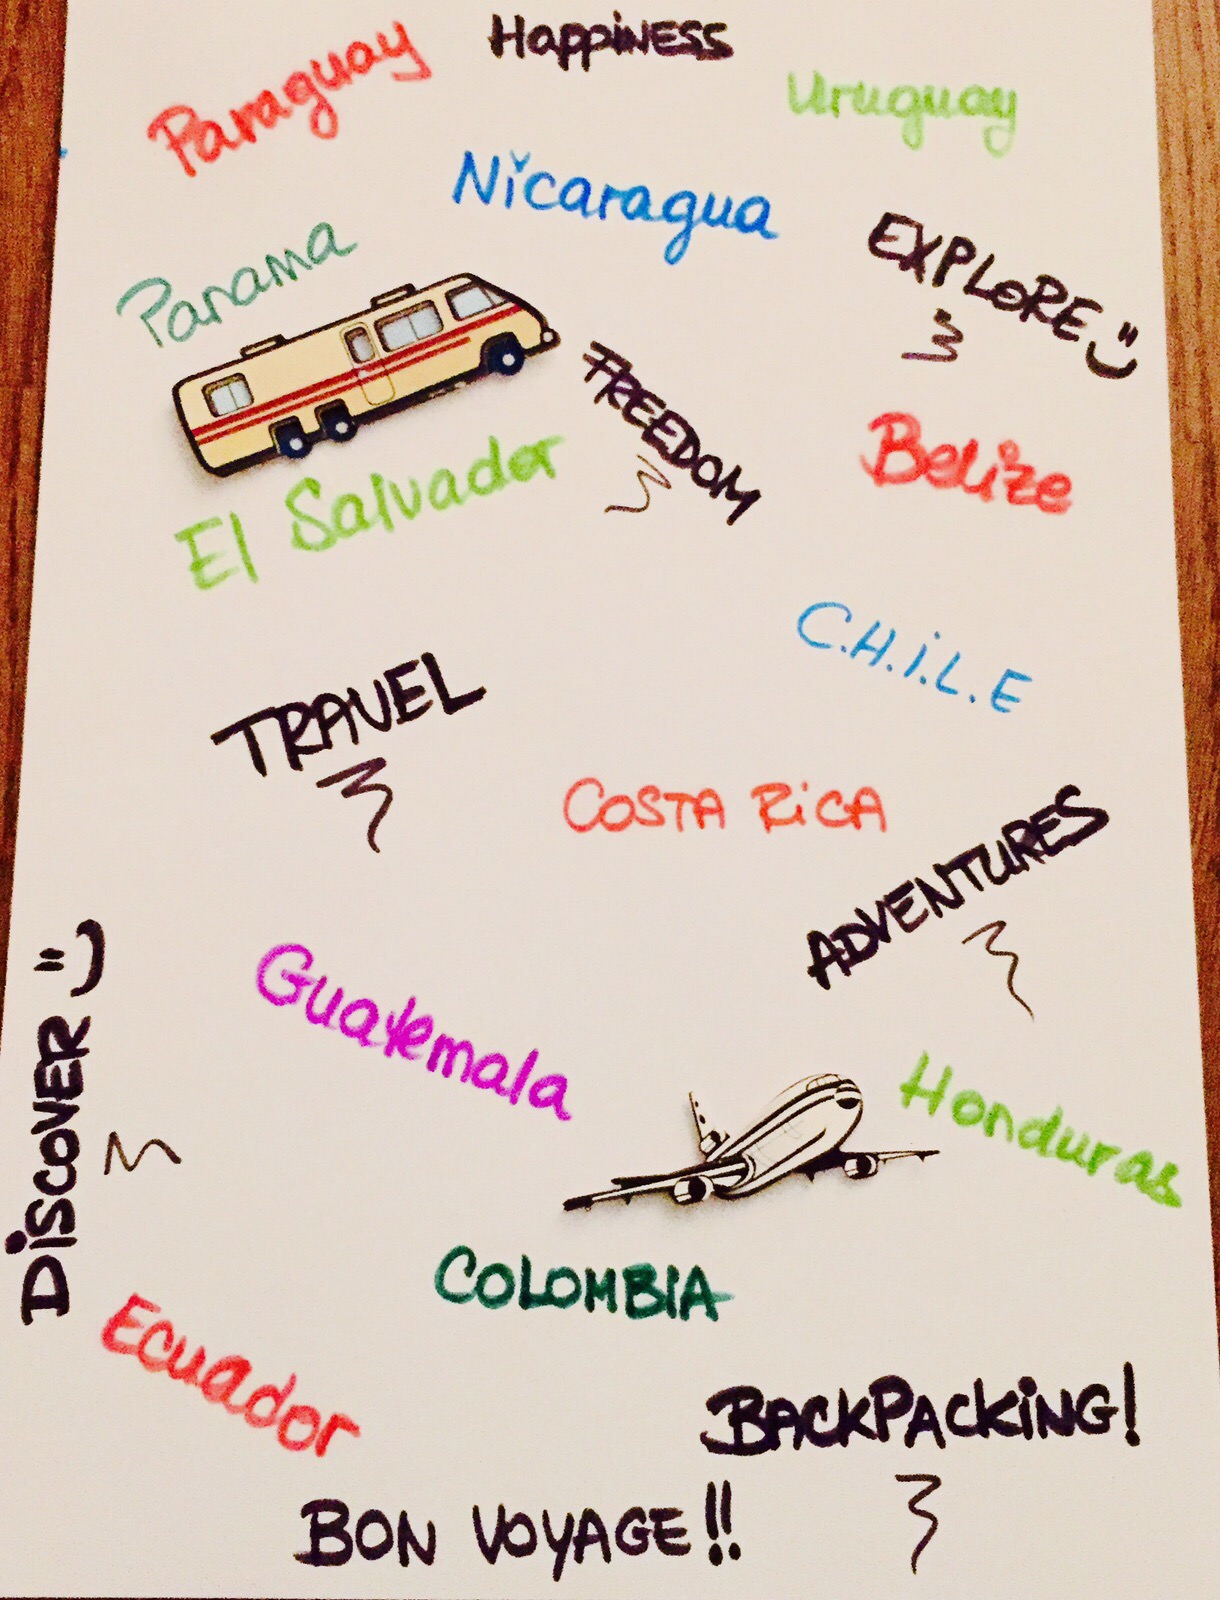 Happiness
Paraguay
Uruguay
Nicaragua
Panama
EXPLORE
FREEDOM
Belize
El Salvador
C.H.I.L.E
TRAVEL
COSTA RICA
ADVENTURES
Guatemala
DISCOVER
Honduras
COLOMBIA
Ecuador
BACKPACKING!
BON VOYAGE!!